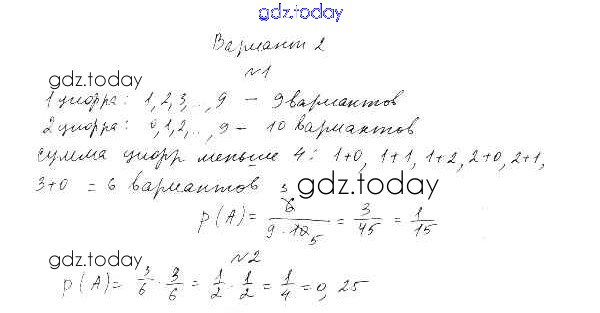 gdz.today
Вариант 2
№1
gdz.today
1 цифра: 1, 2, 3, .., 9 - 9 вариантов
2 цифра: 0, 1, 2, .., 9 - 10 вариантов
сумма цифр меньше 4: 1+0, 1+1, 1+2, 2+0, 2+1,
3+0 = 6 вариантов
gdz.today
P(A) = 6̸ 3 / 9 · 1̸0̸ 5 = 3/45 = 1/15
gdz.today
№2
P(A) = 3/6 · 3/6 = 1/2 · 1/2 = 1/4 = 0,25